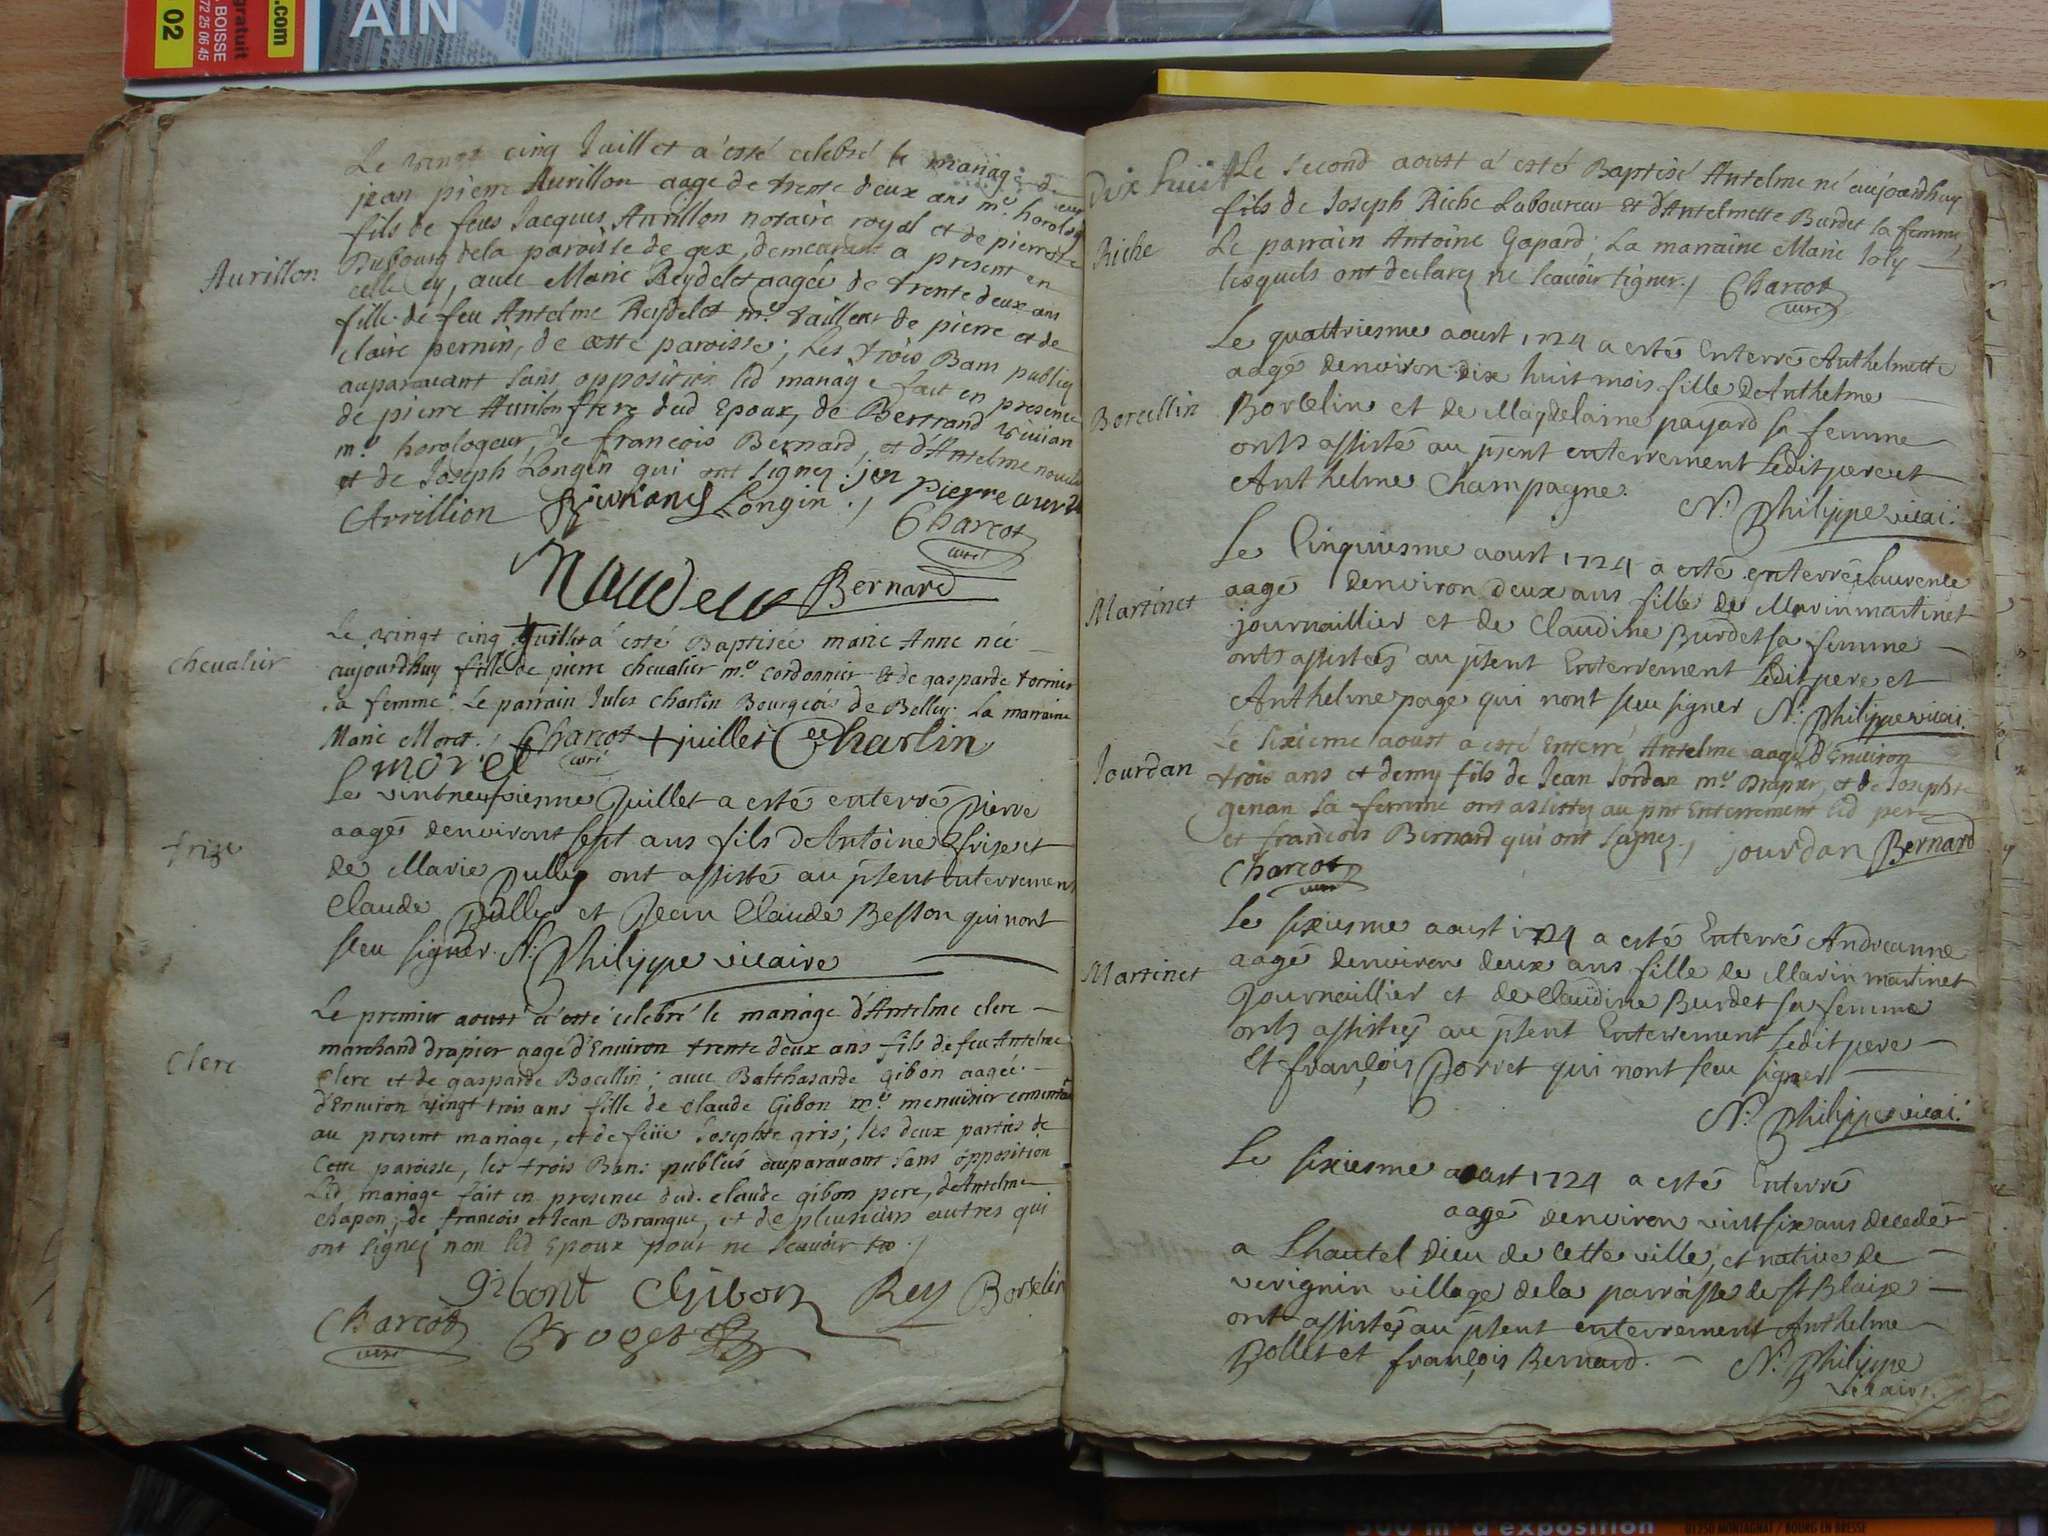 .com
gratuit
BOISSE
72 25 06 45
02
AIN
Le vingt cinq Juillet a'esté celebré le mariage de
jean pierre Aurillon aage de trente deux ans m.e horologeur
fils de feus Jacques Aurillon notaire royal et de pierrette
Dubourg dela paroisse de gex, demeurant a present en
Aurillon
celle cy, avec Marie Reydelet aagée de trente deux ans
fille de feu Anthelme Reydelet m.e tailleur de pierre et de
claire pernin, de cette paroisse; les trois Bans publiez
auparavant sans opposition led mariage fait en presence
de pierre Aurilon frere dud Epoux, de Bertrand vivian
m.e horologeur, de francois Bernard, et d'Antelme
et de Joseph Longin qui ont signez. jen pierre
Avrillion Longin
Charcot
curé
Bernard
Le vingt cinq Juillet a'esté Baptisée marie Anne née
chevalier
aujourdhuy fille de pierre chevalier m.e cordonnier et de gasparde
sa femme. Le parrain Jules Charlin Bourgeois de Belley. La marraine
Marie Moret. Charcot + juillet Charlin
curé
morel
Le vintneufvieme Juillet a esté enterré pierre
aagés denviront sept ans fils d'Antoine frize et
frize
de Marie pully ont assisté au psent enterrement
Claude pully et Jean Claude Besson qui nont
sceu signer. N: Philippe vicaire
Le premier aoust a esté celebré le mariage d'Antelme clerc
marchand drapier aagé d'Environ trente deux ans fils de feu Antelme
Clerc
Clerc et de gasparde Bocellin; avec Balthasarde gibon aagée
d'Environ vingt trois ans fille de claude Gibon m.e menuisier consentant
au present mariage, et de feüe Josephte gris; les deux parties de
cette paroisse, les trois Bans publiés auparavant sans opposition
Led mariage fait en presence dud. claude gibon pere, d'Antelme
chapon, de francois et Jean Branque, et de plusieurs autres qui
ont signez non led Epoux pour ne scavoir
gibont Gibon Rey Borselin
Charcot
curé
Dix huit
Le second aoust a esté Baptisé Antelme né aujourdhuy
fils de Joseph Riche Laboureur et d'Antelmette Burdet sa femme,
Riche
Le parrain Antoine Gopard; La marraine Marie Joly
lesquels ont declarez ne scavoir signer./ Charcot
curé
Le quattriesme aoust 1724 a estés Enterrés Anthelmette
aagé denviron dix huit mois fille d'Anthelme
Borcellin
Borcelin et de Magdelaine payard sa femme
onts assisté au psent enterrement Ledit pere et
Anthelme Champagne.
N: Philippe vicai:
Le Cinquiesme aoust 1724 a esté enterrée Laurence
aagé denviron deux ans fille de Marin martinet
Martinet
journaillier et de Claudine Burdet sa femme
onts assistés au psent Enterrement Ledit pere et
Anthelme page qui nont sceu signer N: Philippe vicai:
Le sixieme aoust a esté Enterré Antelme aagé d'Environ
Jourdan
trois ans et demy fils de Jean Jordan m.e Drapier, et de Josephte
genan sa femme ont assistez au pnt Enterrement led pere
et francois Bernard qui ont signez./ jourdan Bernard
Charcot
curé
Le sixiesme aoust 1724 a esté Enterré Andreanne
aagé denviron deux ans fille de Marin martinet
Martinet
Journaillier et de Claudine Burdet sa femme
onts assistés au psent Enterrement Ledit pere
Et françois porret qui nont sceu signer
N: Philippe vicai:
Le sixiesme aoust 1724 a esté Enterré
aagé denviron vint six ans decedés
a Lhautel Dieu de cette ville, et native de
virignin village dela parroisse de St Blaise
ont assistés au psent enterrement Anthelme
Bollet et françois Bernard. N: Philippe
vicaire
500 m² d'exposition
01250 MONTAGNAT / BOURG EN BRESSE